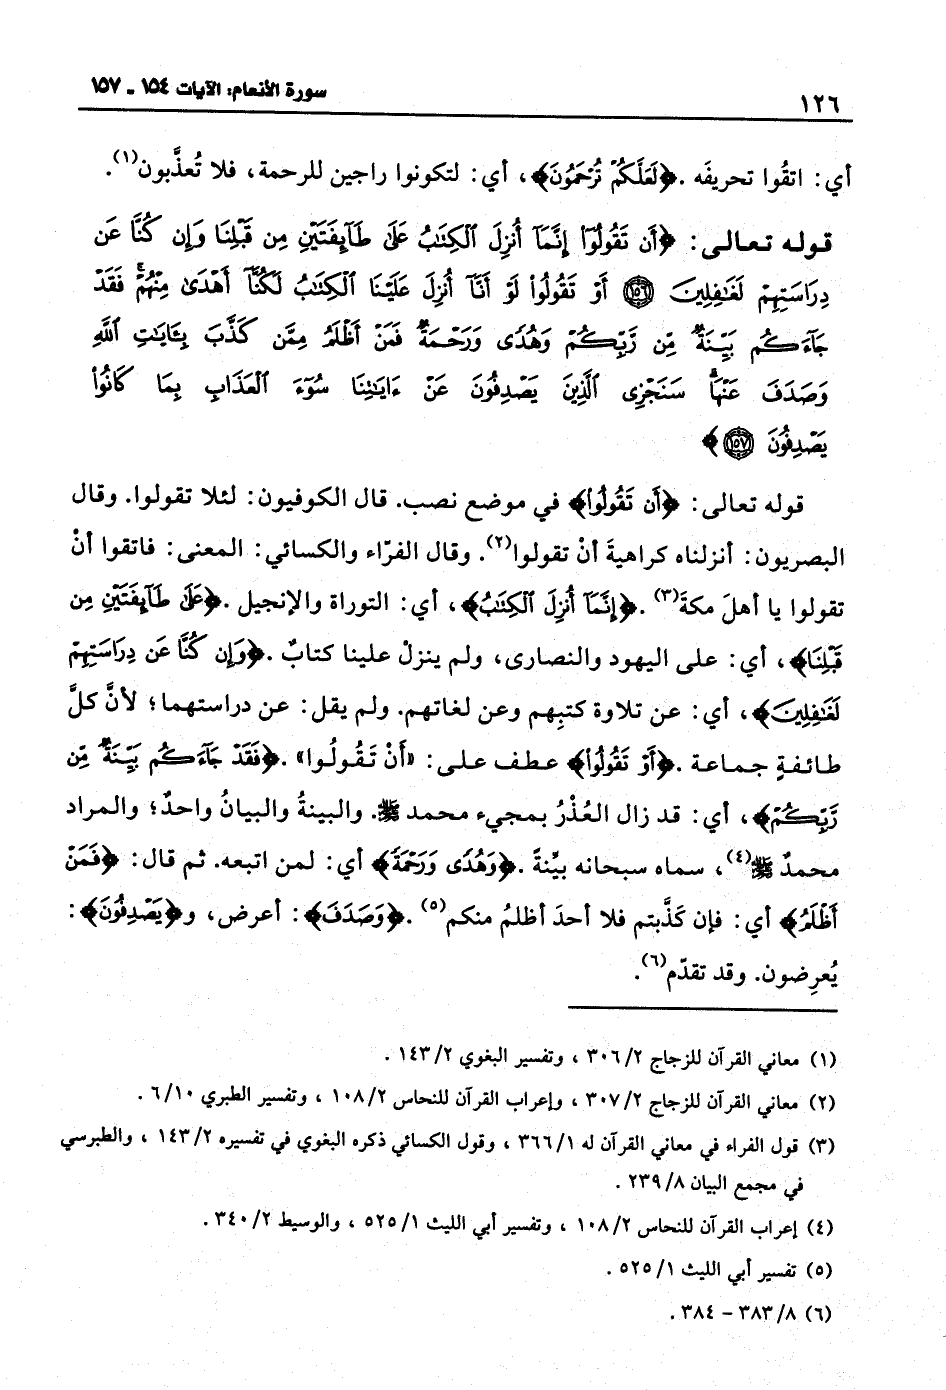 سورة الأنعام: الآيات ١٥٤ ـ ١٥٧
١٢٦
أي: اتقُوا تحريفَه .﴿لَعَلَّكُمْ تُرْحَمُونَ﴾، أي: لتكونوا راجين للرحمة، فلا تُعذَّبون(١).
قوله تعالى: ﴿أَن تَقُولُوٓا۟ إِنَّمَآ أُنزِلَ ٱلْكِتَٰبُ عَلَىٰ طَآئِفَتَيْنِ مِن قَبْلِنَا وَإِن كُنَّا عَن
دِرَاسَتِهِمْ لَغَٰفِلِينَ ۝١٥٦ أَوْ تَقُولُوا۟ لَوْ أَنَّآ أُنزِلَ عَلَيْنَا ٱلْكِتَٰبُ لَكُنَّآ أَهْدَىٰ مِنْهُمْ ۚ فَقَدْ
جَآءَكُم بَيِّنَةٌ مِّن رَّبِّكُمْ وَهُدًى وَرَحْمَةٌ ۚ فَمَنْ أَظْلَمُ مِمَّن كَذَّبَ بِـَٔايَٰتِ ٱللَّهِ
وَصَدَفَ عَنْهَا ۗ سَنَجْزِى ٱلَّذِينَ يَصْدِفُونَ عَنْ ءَايَٰتِنَا سُوٓءَ ٱلْعَذَابِ بِمَا كَانُوا۟
يَصْدِفُونَ ۝١٥٧﴾
قوله تعالى: ﴿أَن تَقُولُوٓا۟﴾ في موضع نصب. قال الكوفيون: لئلا تقولوا. وقال
البصريون: أنزلناه كراهيةَ أنْ تقولوا(٢). وقال الفرّاء والكسائي: المعنى: فاتقوا أنْ
تقولوا يا أهلَ مكةَ(٣) .﴿إِنَّمَآ أُنزِلَ ٱلْكِتَٰبُ﴾، أي: التوراة والإنجيل .﴿عَلَىٰ طَآئِفَتَيْنِ مِن
قَبْلِنَا﴾، أي: على اليهود والنصارى، ولم ينزلْ علينا كتابٌ .﴿وَإِن كُنَّا عَن دِرَاسَتِهِمْ
لَغَٰفِلِينَ﴾، أي: عن تلاوة كتبِهم وعن لغاتهم. ولم يقل: عن دراستهما؛ لأنَّ كلَّ
طائفةٍ جماعة .﴿أَوْ تَقُولُوا۟﴾ عطف على: «أَنْ تَقُولُوا» .﴿فَقَدْ جَآءَكُم بَيِّنَةٌ مِّن
رَّبِّكُمْ﴾، أي: قد زال العُذْرُ بمجيء محمد ﷺ. والبينةُ والبيانُ واحدٌ؛ والمراد
محمدٌ ﷺ(٤)، سماه سبحانه بيِّنةً .﴿وَهُدًى وَرَحْمَةٌ﴾ أي: لمن اتبعه. ثم قال: ﴿فَمَنْ
أَظْلَمُ﴾ أي: فإن كَذَّبتم فلا أحدَ أظلمُ منكم(٥) .﴿وَصَدَفَ﴾: أعرض، و﴿يَصْدِفُونَ﴾:
يُعرِضون. وقد تقدّم(٦).
(١) معاني القرآن للزجاج ٣٠٦/٢ ، وتفسير البغوي ١٤٣/٢ .
(٢) معاني القرآن للزجاج ٣٠٧/٢ ، وإعراب القرآن للنحاس ١٠٨/٢ ، وتفسير الطبري ٦/١٠ .
(٣) قول الفراء في معاني القرآن له ٣٦٦/١ ، وقول الكسائي ذكره البغوي في تفسيره ١٤٣/٢ ، والطبرسي
في مجمع البيان ٢٣٩/٨ .
(٤) إعراب القرآن للنحاس ١٠٨/٢ ، وتفسير أبي الليث ٥٢٥/١ ، والوسيط ٣٤٠/٢ .
(٥) تفسير أبي الليث ٥٢٥/١ .
(٦) ٣٨٣/٨ – ٣٨٤ .